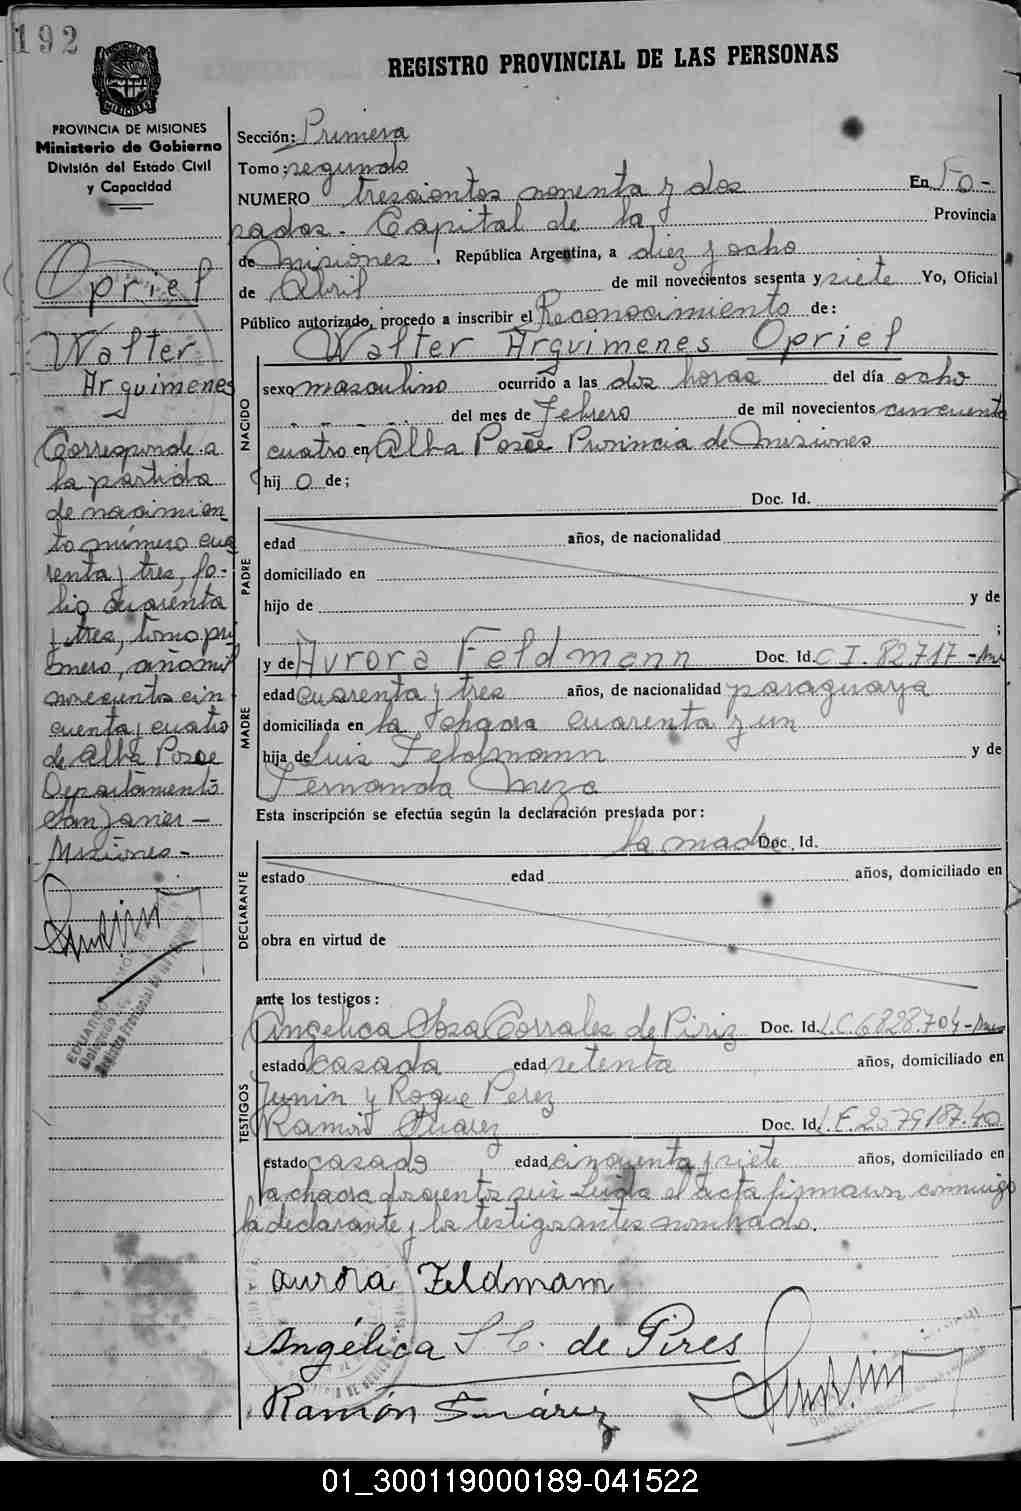 192
REGISTRO PROVINCIAL DE LAS PERSONAS
PROVINCIA DE MISIONES
Ministerio de Gobierno
División del Estado Civil
y Capacidad
Opriel
Walter
Arquimenes
Corresponde a
la partida
de nacimien
to número cua
renta y tres, fo-
lio cuarenta
y tres, tomo pri
mero, año mil
novecientos cin
cuenta y cuatro
de Alba Posse
Departamento
San Javier -
Misiones -
Sección: Primera
Tomo: segundo
NUMERO trescientos noventa y dos En Po-
sadas - Capital de la Provincia
de Misiones, República Argentina, a diez y ocho
de Abril de mil novecientos sesenta y siete Yo, Oficial
Público autorizado, procedo a inscribir el Reconocimiento de:
Walter Arquimenes Opriel
NACIDO
sexo masculino ocurrido a las dos horas del día ocho
del mes de Febrero de mil novecientos cincuenta
cuatro en Alba Posse Provincia de Misiones
hij o de;
PADRE
Doc. Id.
edad años, de nacionalidad
domiciliado en
hijo de y de
;
MADRE
y de Aurora Feldmann Doc. Id. C I. 82.717 - Mnes
edad cuarenta y tres años, de nacionalidad paraguaya
domiciliada en la chacra cuarenta y un
hija de Luis Feldmann y de
Fernanda Meza
Esta inscripción se efectúa según la declaración prestada por:
la madre Doc. Id.
DECLARANTE
estado edad años, domiciliado en
obra en virtud de
ante los testigos:
TESTIGOS
Angelica Sosa Corrales de Piriz Doc. Id. L.C. 6828.704 - Mnes
estado casada edad setenta años, domiciliado en
Junin y Roque Perez
Ramón Suarez Doc. Id. L.E. 2579187.40
estado casado edad cincuenta y siete años, domiciliado en
la chacra doscientos seis - Leída el acta firmaron conmigo
la declarante y los testigos antes nombrado.
Aurora Feldmam
Angélica S C. de Pires
Ramón Suárez
01_300119000189-041522